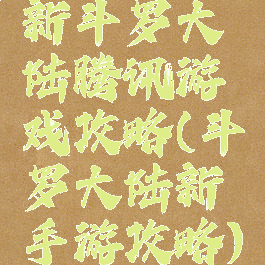 新斗罗大
陆腾讯游
戏攻略(斗
罗大陆新
手游攻略)